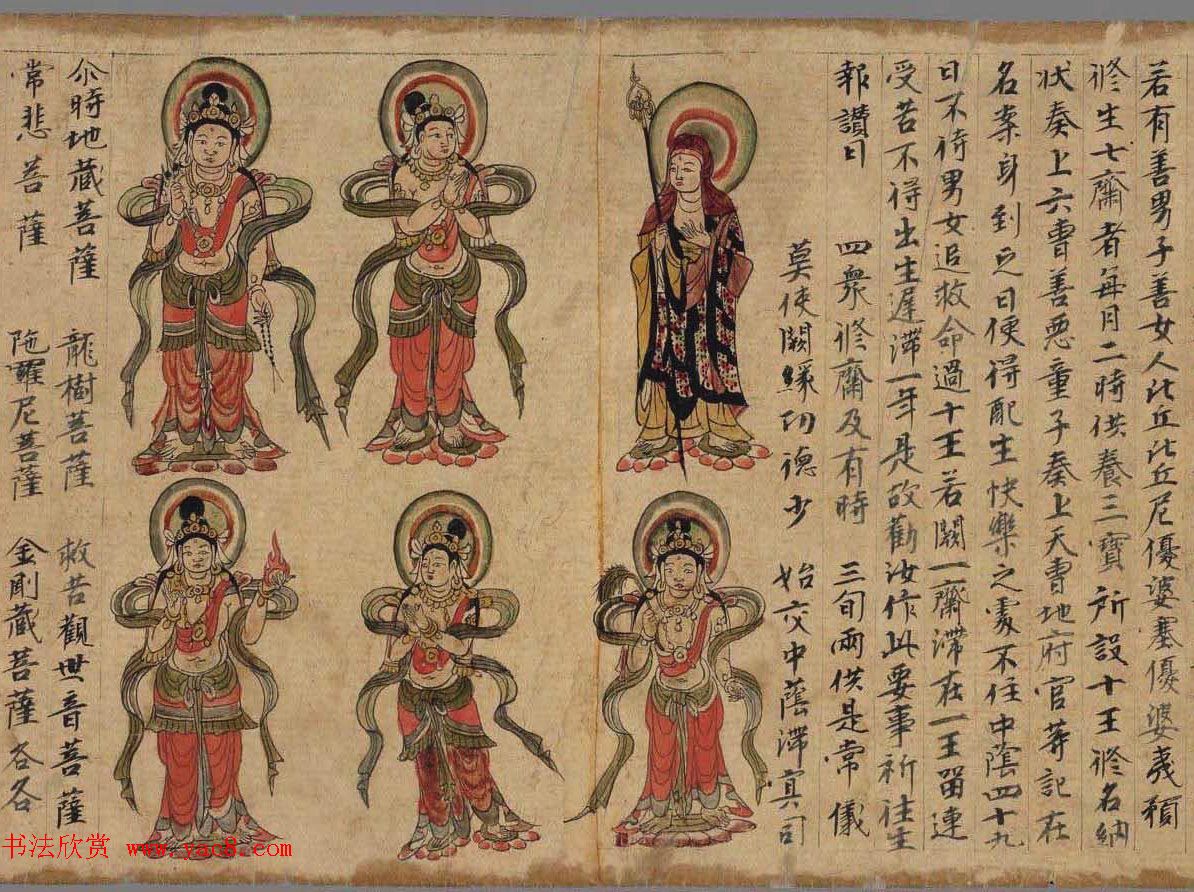 若有善男子善女人比丘比丘尼優婆塞優婆夷預
修生七齋者每月二時供養三寶 所設十王修名納
狀奏上六曹善惡童子奏上天曹地府官等記在
名案身到之日便得配生快樂之處不住中陰四十九
日不待男女追救命過十王若闕一齋滯在一王留連
受苦不得出生遲滯一年是故勸汝作此要事祈往生
報讚曰 四衆修齋及有時 三旬兩供是常儀
莫使闕緣功德少 始交中蔭滯冥司
尒時地藏菩薩 龍樹菩薩 救苦觀世音菩薩
常悲菩薩 陁囉尼菩薩 金剛藏菩薩各各
书法欣赏 www.yac8.com